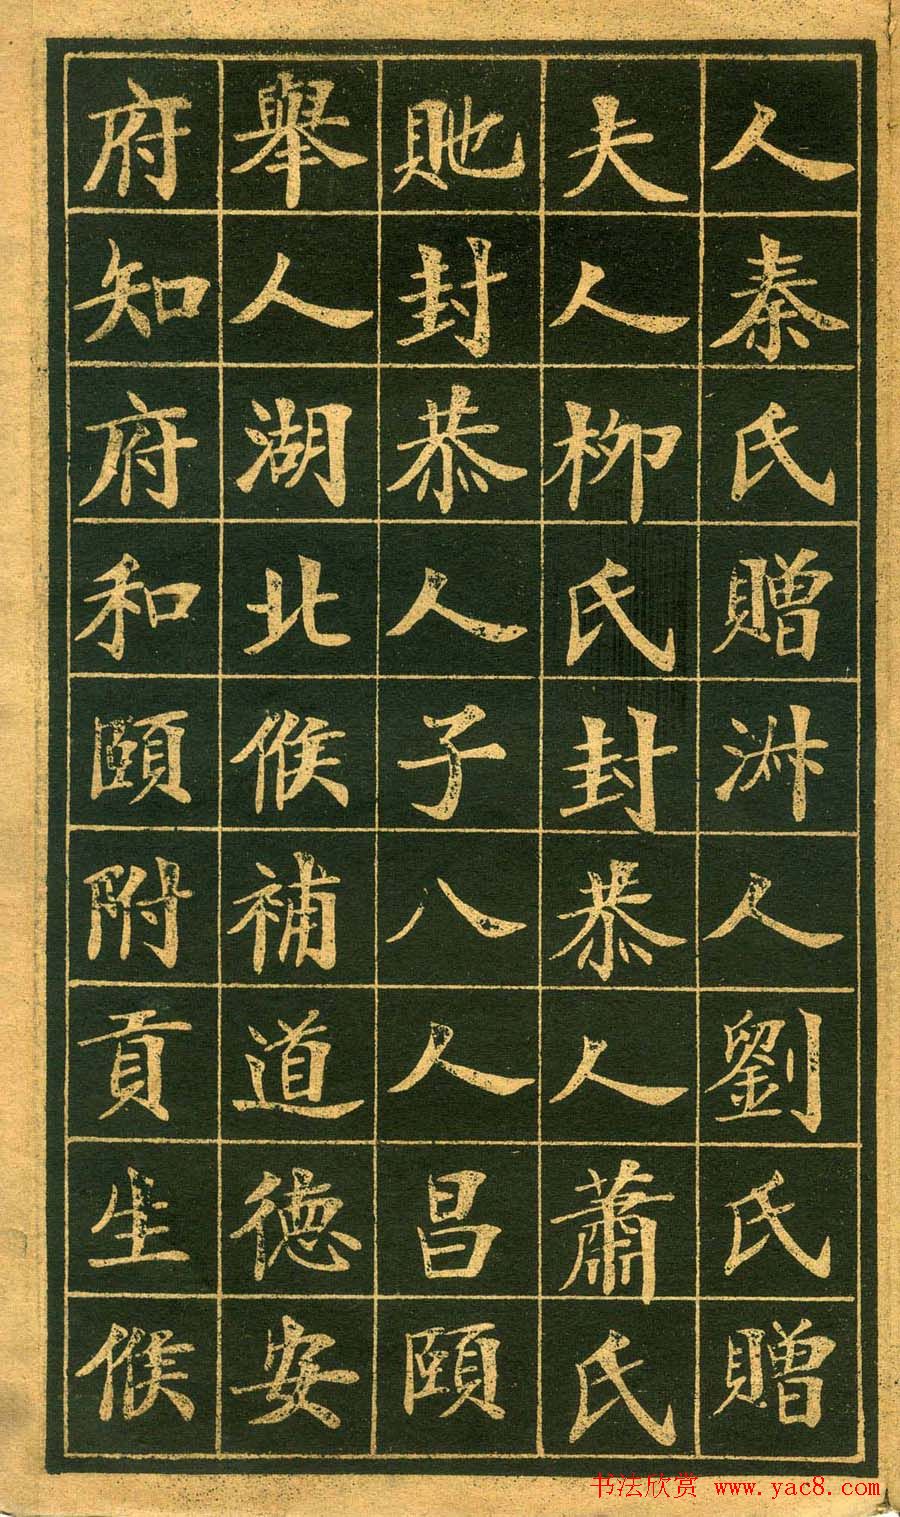 人秦氏贈淋人劉氏贈
夫人柳氏封恭人蕭氏
貤封恭人子八人昌頤
舉人湖北候補道德安
府知府和頤附貢生候
书法欣赏 www.yac8.com